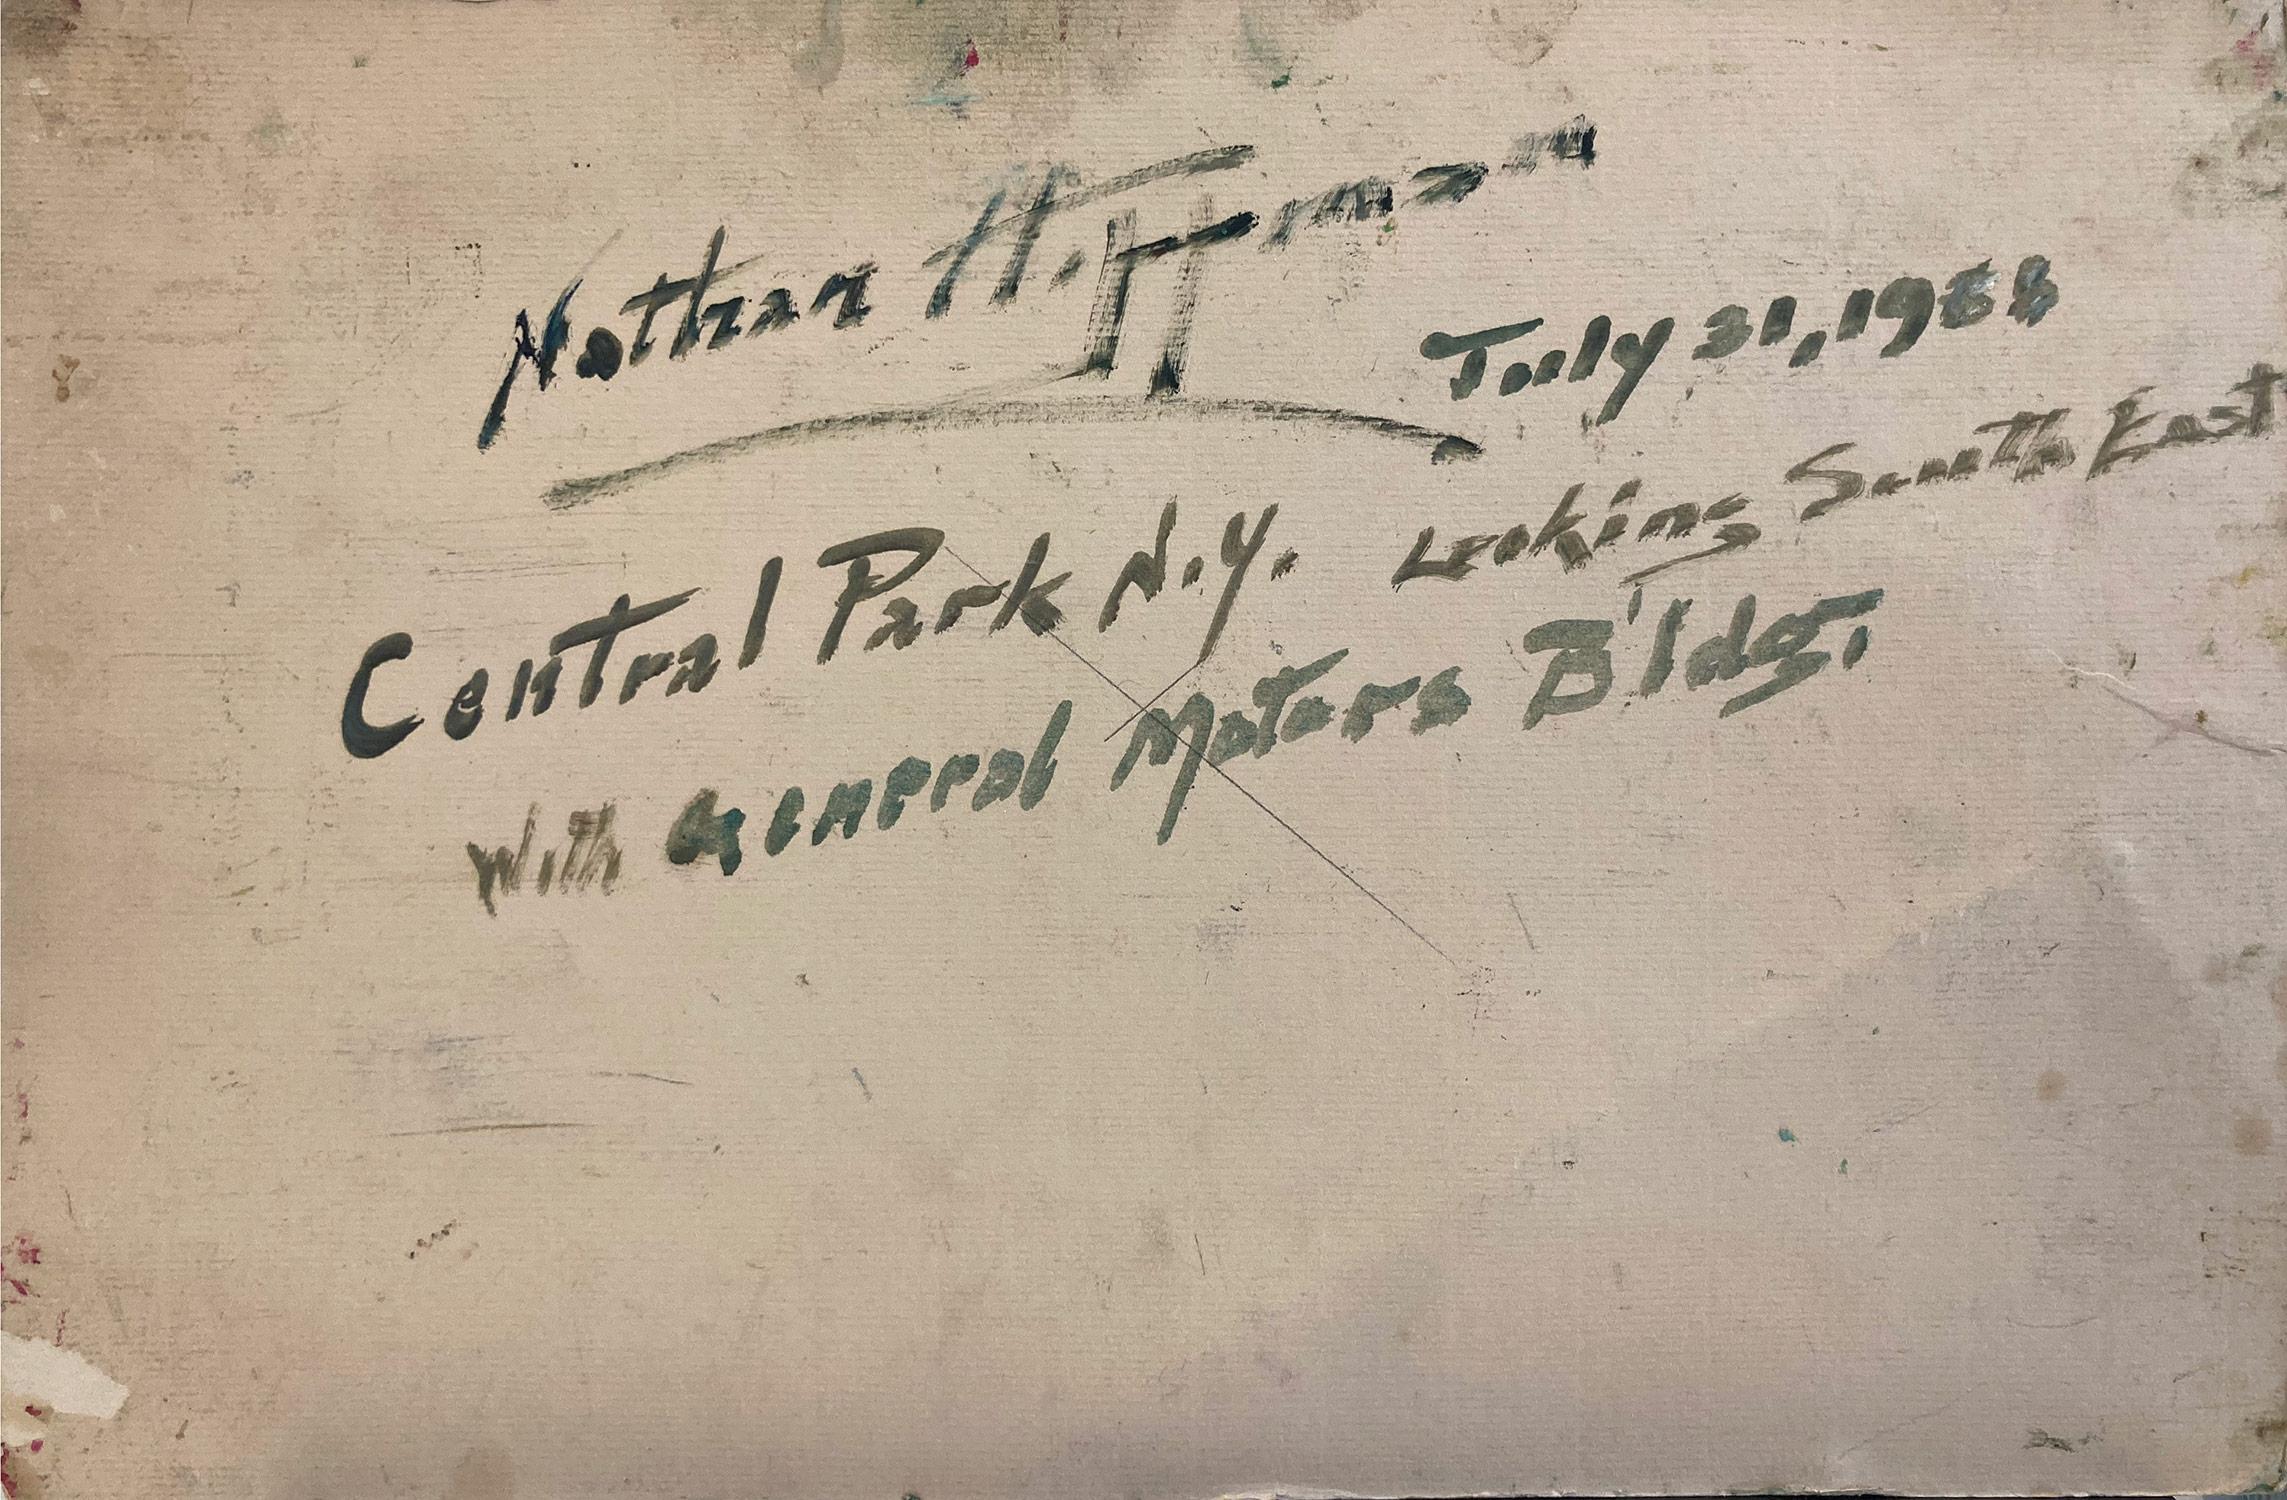 Nathan Hoffman
July 31, 1988
Central Park N.Y. Looking South East
With General Motors B'ldg.